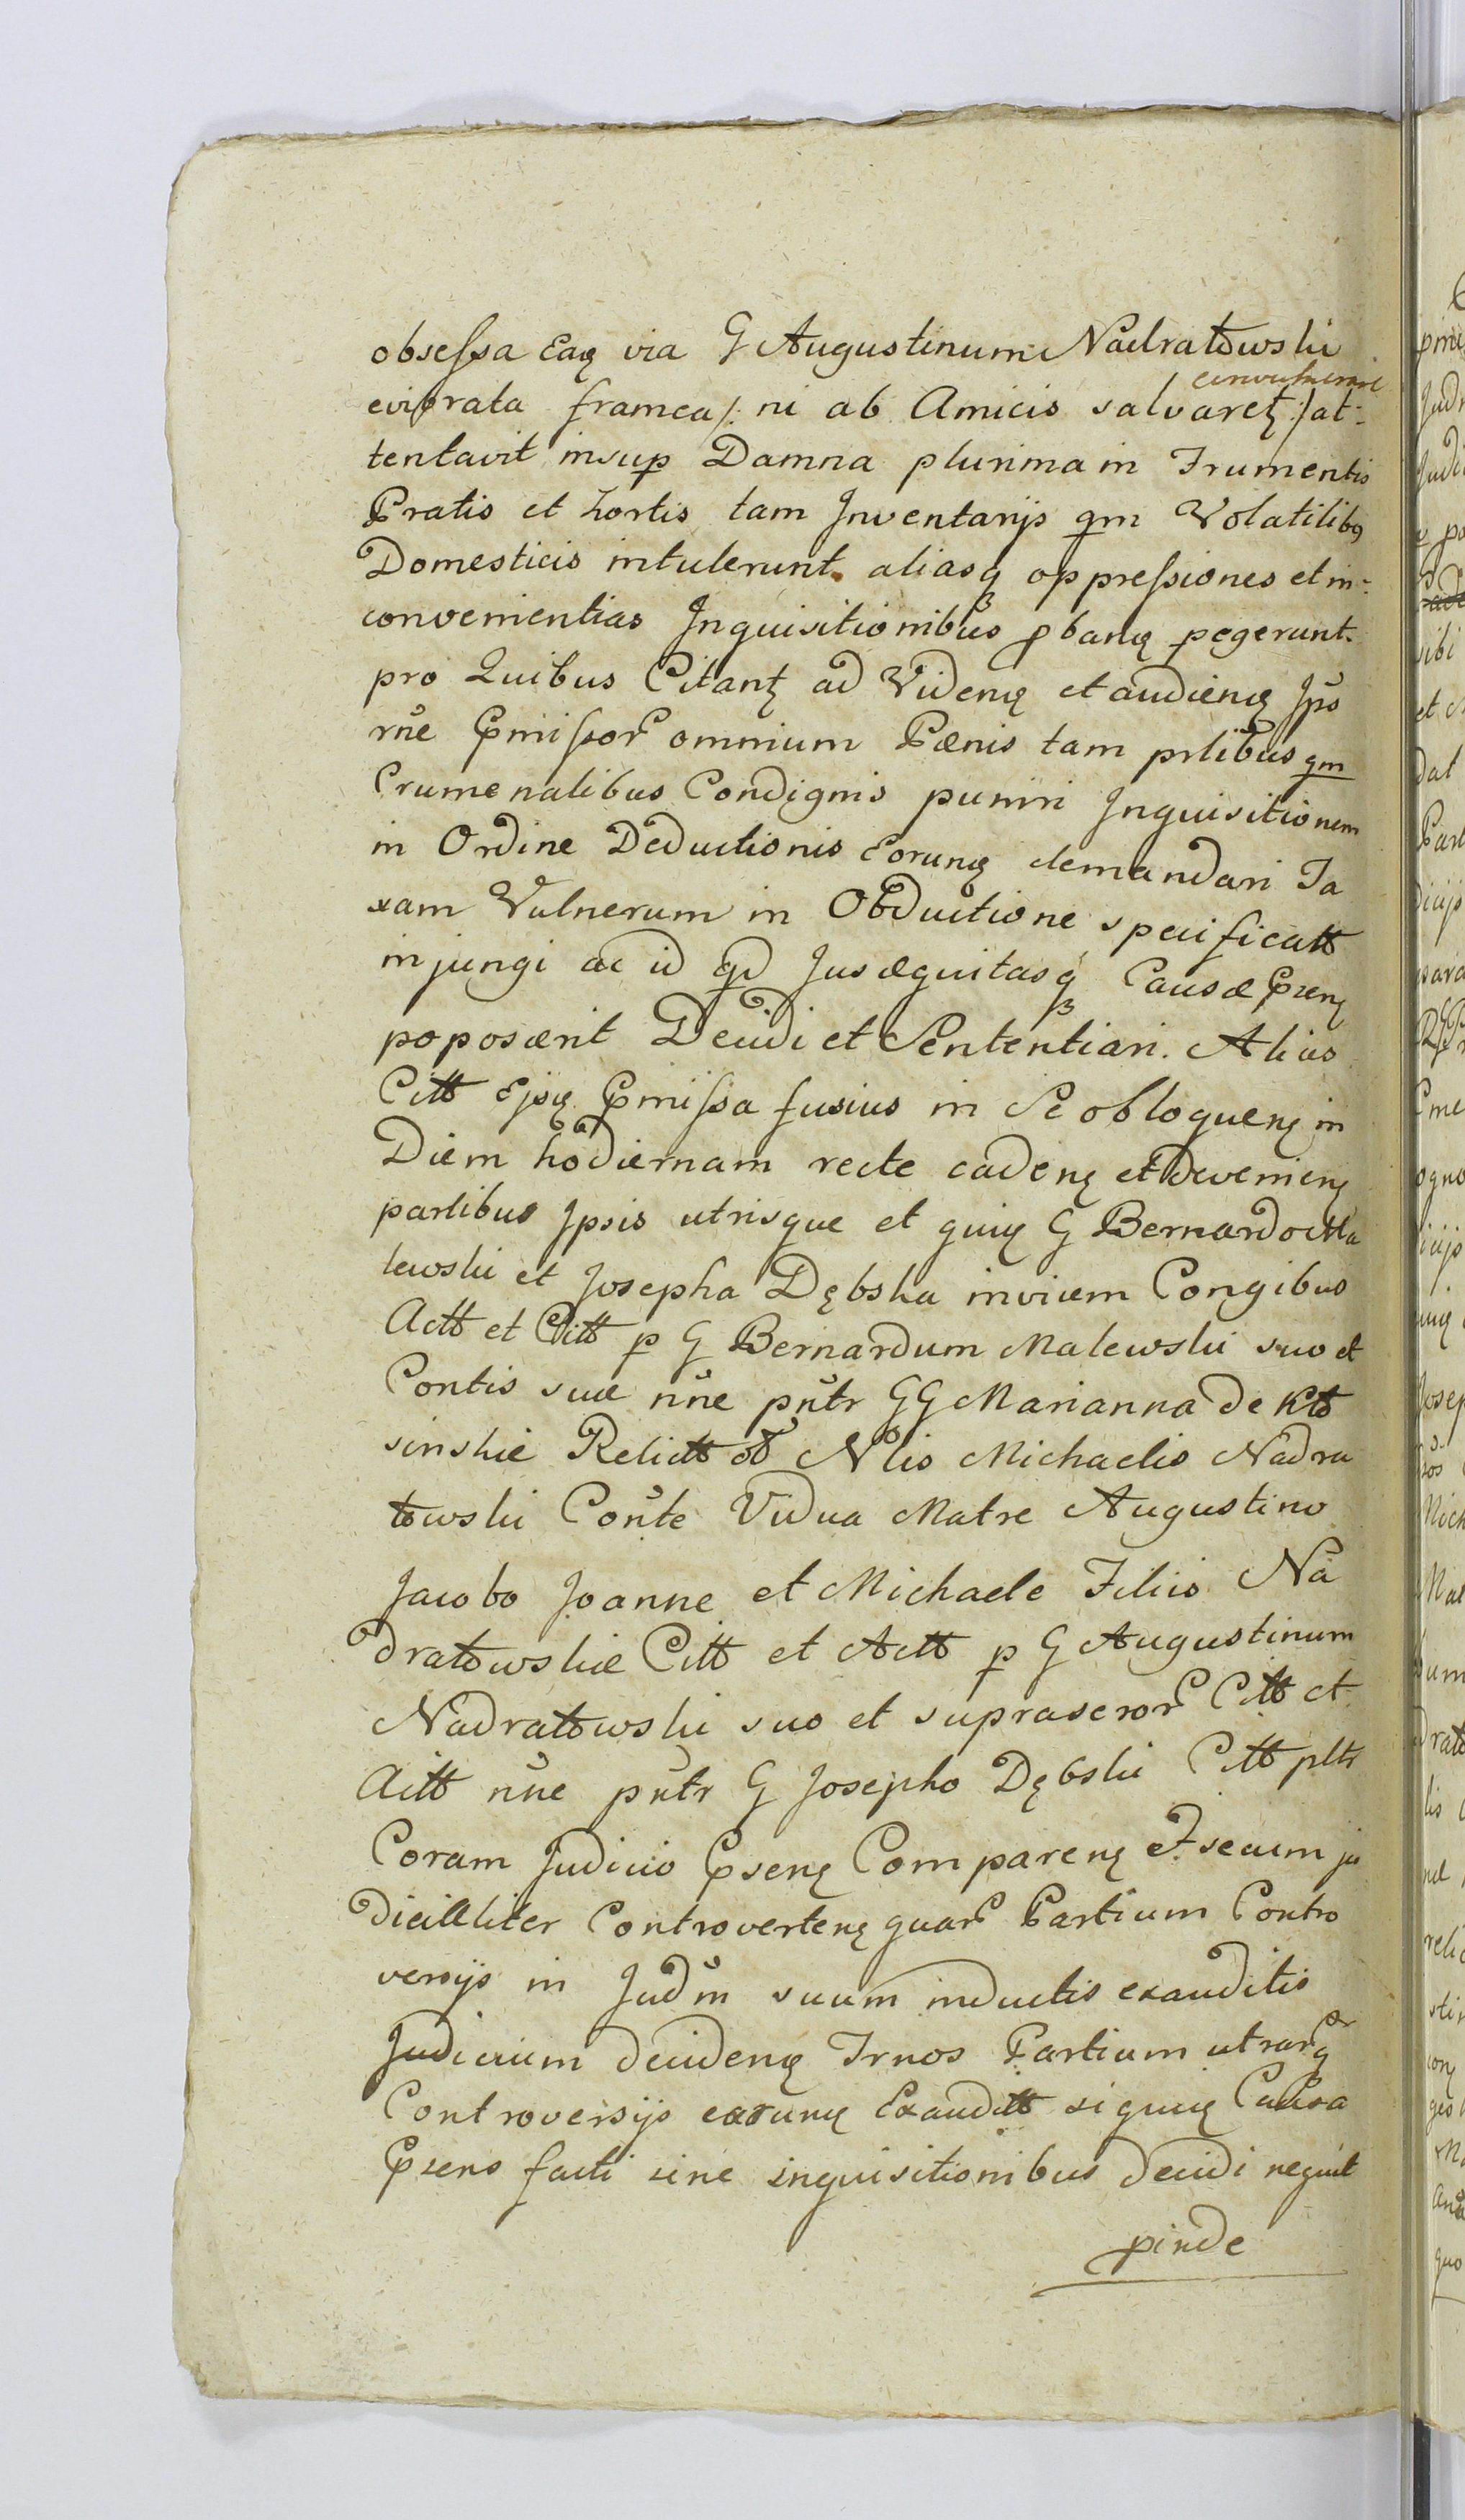 obsessa Eaq via G Augustinum Nadratowski
convulnerare
evibrata framea /: ni ab Amicis salvaretz :/ at-
tentavit insup Damna plurima in Frumentis
Pratis et hortis tam Inventarijs qm Volatilibq
Domesticis intulerunt. aliasq oppressiones et in-
convenientias Inquisitionibus pbanq pegerunt.
pro Quibus Citantz ad Videnq et audienq Ips
rne Pmissor omnium Pænis tam prlibus qm
Crumenalibus Condignis puniri Inquisitionem
in Ordine Deductionis Eorunq demandari Ta
xam Vulnerum in Obductione specificatt
injungi ac id qd Jus æquitasq Causæ Psenq
poposcerit Decidi et Sententiari. Alias
Citt Ejsq Pmissa fusius in Se obloquenq in
Diem hodiernam recte cadenq et devenienq
partibus Ipsis utrisque et quiq G Bernardo Ma
lewski et Josepha Dębska invicem Congibus
Actt et Citt p G Bernardum Malewski suo et
Contis suæ nne pntr GG Marianna de Kło
sinskie Relictt ol Nlis Michaelis Nadra
towski Conte Vidua Matre Augustino
Jacobo Joanne et Michaele Filiis Na
dratowskie Citt et Actt p G Augustinum
Nadratowski suo et suprascror Citt et
Actt nne pntr G Josepho Dębski Citt pltr
Coram Judicio Psenq Comparenq et secum ju
diciallliter Controvertenq quar Partium Contro
versijs in Judm suum inductis exauditis
Judicium decidenq Trnos Partium utrarq
Controversijs earunq Exauditt siquiq Causa
Psens facti sine inquisitionibus decidi nequit
pinde